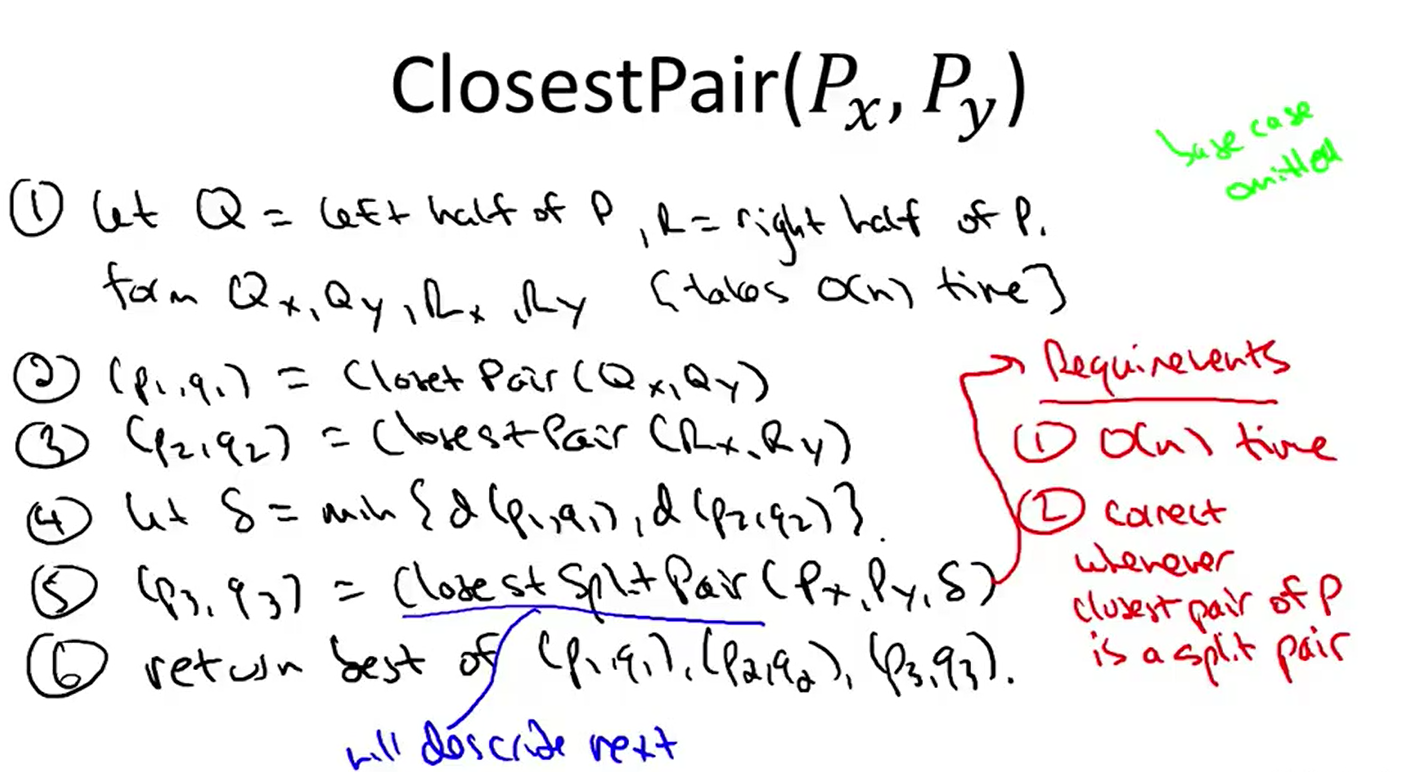 ClosestPair(Pₓ, Pᵧ)
base case
omitted
① Let Q = left half of P, R = right half of P.
form Qx, Qy, Rx, Ry {takes O(n) time]
② (p1,q1) = ClosetPair(Qx,Qy)
③ (p2,q2) = ClosestPair(Rx,Ry)
④ let δ = min{d(p1,q1), d(p2,q2)}.
⑤ (p3,q3) = ClosestSplitPair(Px,Py,δ)
⑥ return best of (p1,q1),(p2,q2),(p3,q3).
will describe next
Requirements
① O(n) time
② correct
whenever
closest pair of P
is a split pair